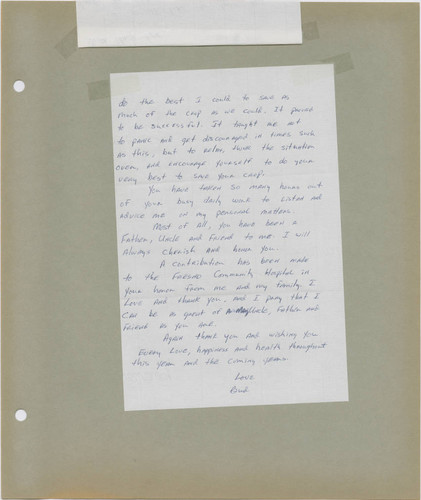 do the best I could to save as
much of the crop as we could. It proved
to be successful. It taught me not
to panic and get discouraged in times such
as this, but to relax, think the situation
over, and encourage yourself to do your
very best to save your crop.
You have taken so many hours out
of your busy daily work to listen and
advise me on my personal matters.
Most of All, you have been a
Father, Uncle and friend to me I will
Always cherish and honor you.
A contribution has been made
to the Fresno Community Hospital in
your honor from me and my family. I
Love And thank you, and I pray that I
can be as great of Uncle, Father and
friend as you are.
Again thank you And wishing you
Every Love, happiness and health throughout
this year and the coming years.
Love